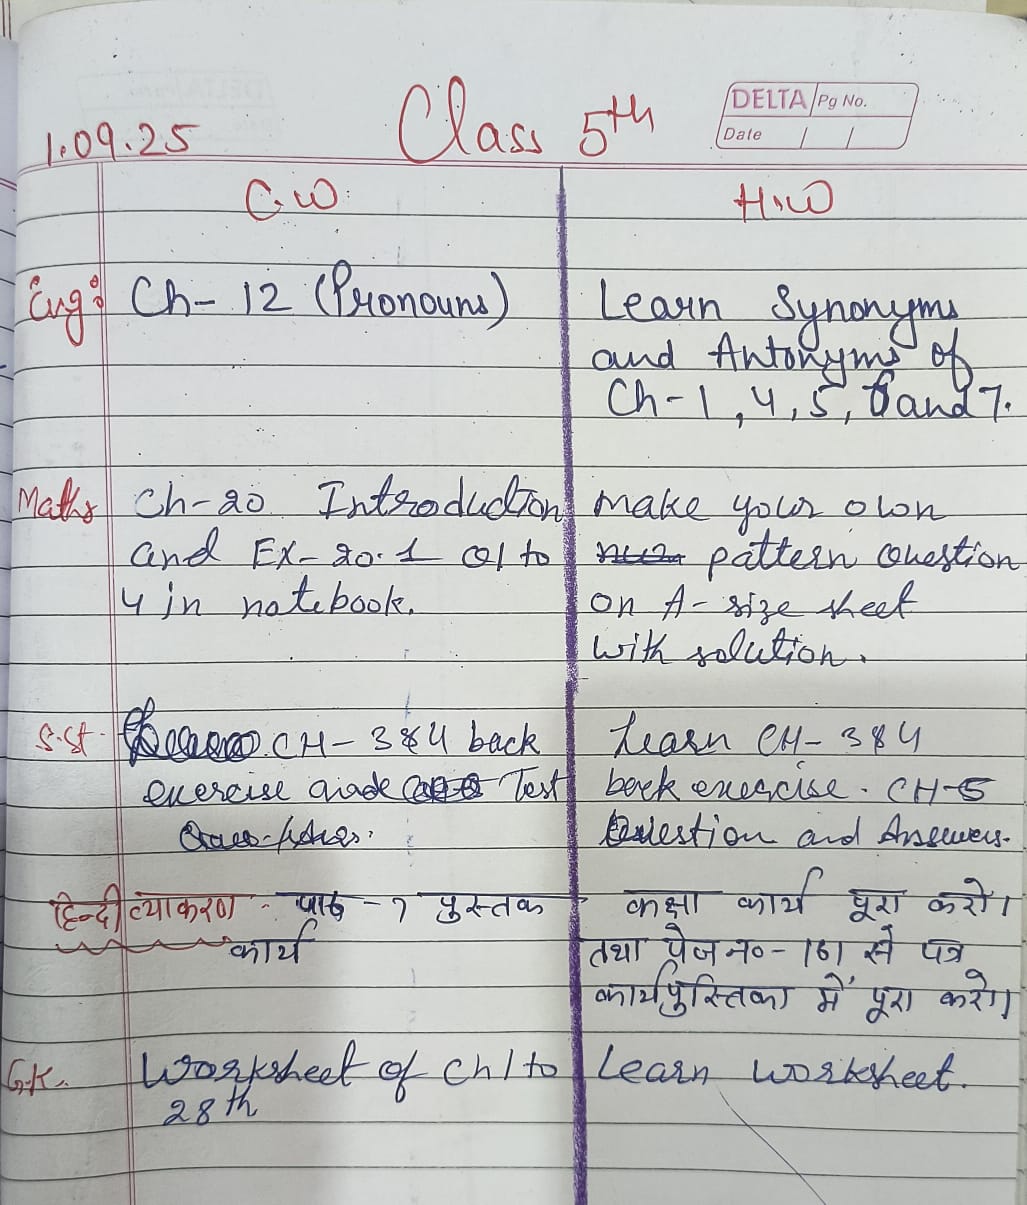 1.09.25
Class 5th
DELTA Pg No.
Date / /
C.W.
H.W
Eng:
Ch- 12 (Pronouns)
Learn Synonyms
and Antonyms of
Ch-1, 4, 5, 6 and 7.
Maths
Ch-20 Introduction
and Ex-20.1 Q1 to
4 in notebook.
make your own
pattern Question
on A- size sheet
with solution.
S.St.
CH- 3 & 4 back
exercise and Test
Learn CH- 3 & 4
back exercise. CH-5
Question and Answers.
हिन्दी व्याकरण - पाठ - 7 पुस्तक
कार्य
कक्षा कार्य पूरा करो।
तथा पेज न०- 161 से पत्र
कार्यपुस्तिका में पूरा करो।
G.K.
Worksheet of Ch 1 to
28th
Learn worksheet.